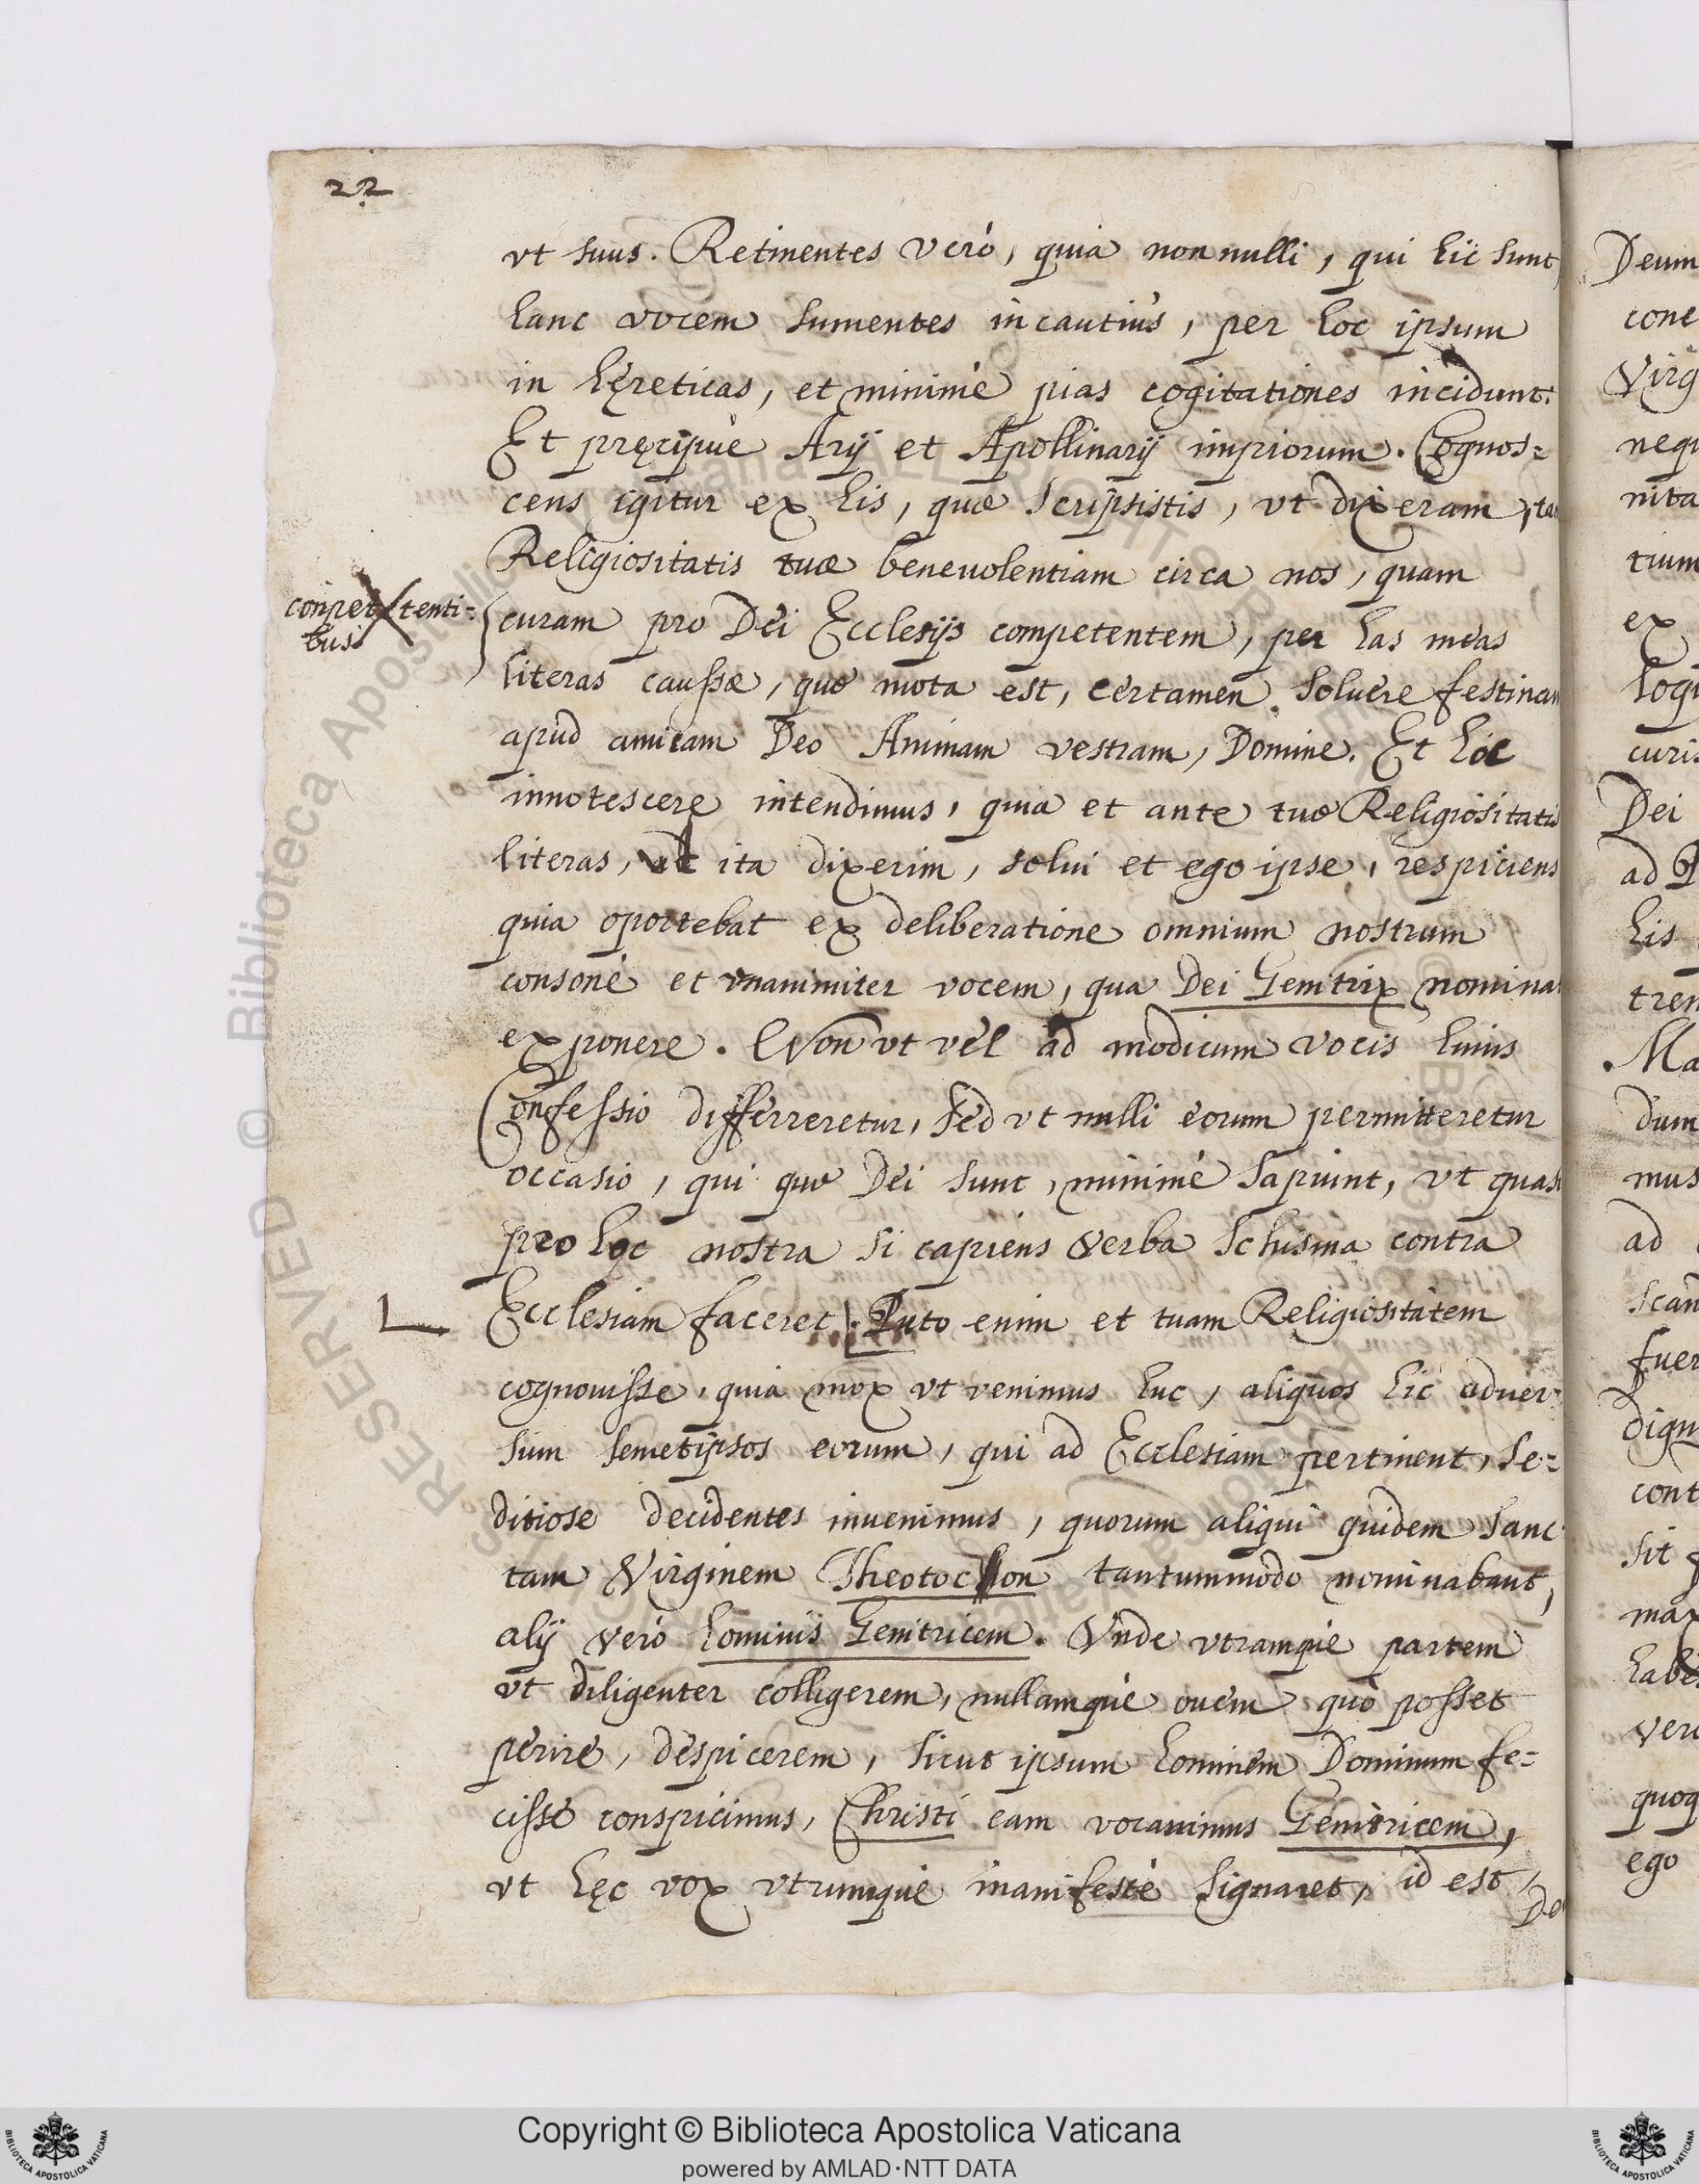 22
vt suus. Retinentes verò, quia nonnulli, qui hìc sunt,
hanc vocem sumentes incautiùs, per hoc ipsum
in hęreticas, et minimè pias cogitationes incidunt.
Et pręcipuè Arij et Apollinarij impiorum. Cognos=
cens igitur ex his, quæ scripsistis, vt dixeram,
Religiositatis tuæ beneuolentiam circa nos, quam
conpet tenti=
bus
curam pro Dei Ecclesijs competentem, per has meas
literas caussæ, quæ mota est, certamen soluere
apud amicam Deo Animam vestram, Domine. Et hoc
innotescere intendimus, quia et ante tuæ Religiositatis
literas, vt ita dixerim, solui et ego ipse, respiciens
quia oportebat ex deliberatione omnium nostrum
consonè et vnanimiter vocem, qua Dei Genitrix
exponere. Non vt vel ad modicum vocis huius
Confessio differreretur, sed vt nulli eorum permitteretur
occasio, qui quæ Dei sunt, minimè sapiunt, vt quasi
pro hęc nostra si capiens verba schisma contra
Ecclesiam faceret. Puto enim et tuam Religiositatem
cognouisse, quia mox vt venimus huc, aliquos hìc aduer=
sum semetipsos eorum, qui ad Ecclesiam pertinent, se=
ditiose decidentes inuenimus, quorum aliqui quidem Sanc
tam Virginem Theotocon tantummodo nominabant,
alij verò hominis Genitricem. Vnde vtramque partem
vt diligenter colligerem, nullamquè ouem quò posset
perire, despicerem, sicut ipsum hominem Dominum fe=
cisse conspicimus, Christi eam vocauimus Genitricem,
vt hęc vox vtrumquè manifestè signaret, id est,
De
Deum
Virg
nequ
nita
tium
ex
curis
Dei
his
Ma
dum
mus
ad
dign
cont
sit
quoq
ego
© Biblioteca Apostolica Vaticana
RESERVED
Copyright © Biblioteca Apostolica Vaticana
powered by AMLAD·NTT DATA
BIBLIOTECA APOSTOLICA VATICANA
BIBLIOTECA APOSTOLICA VATICANA